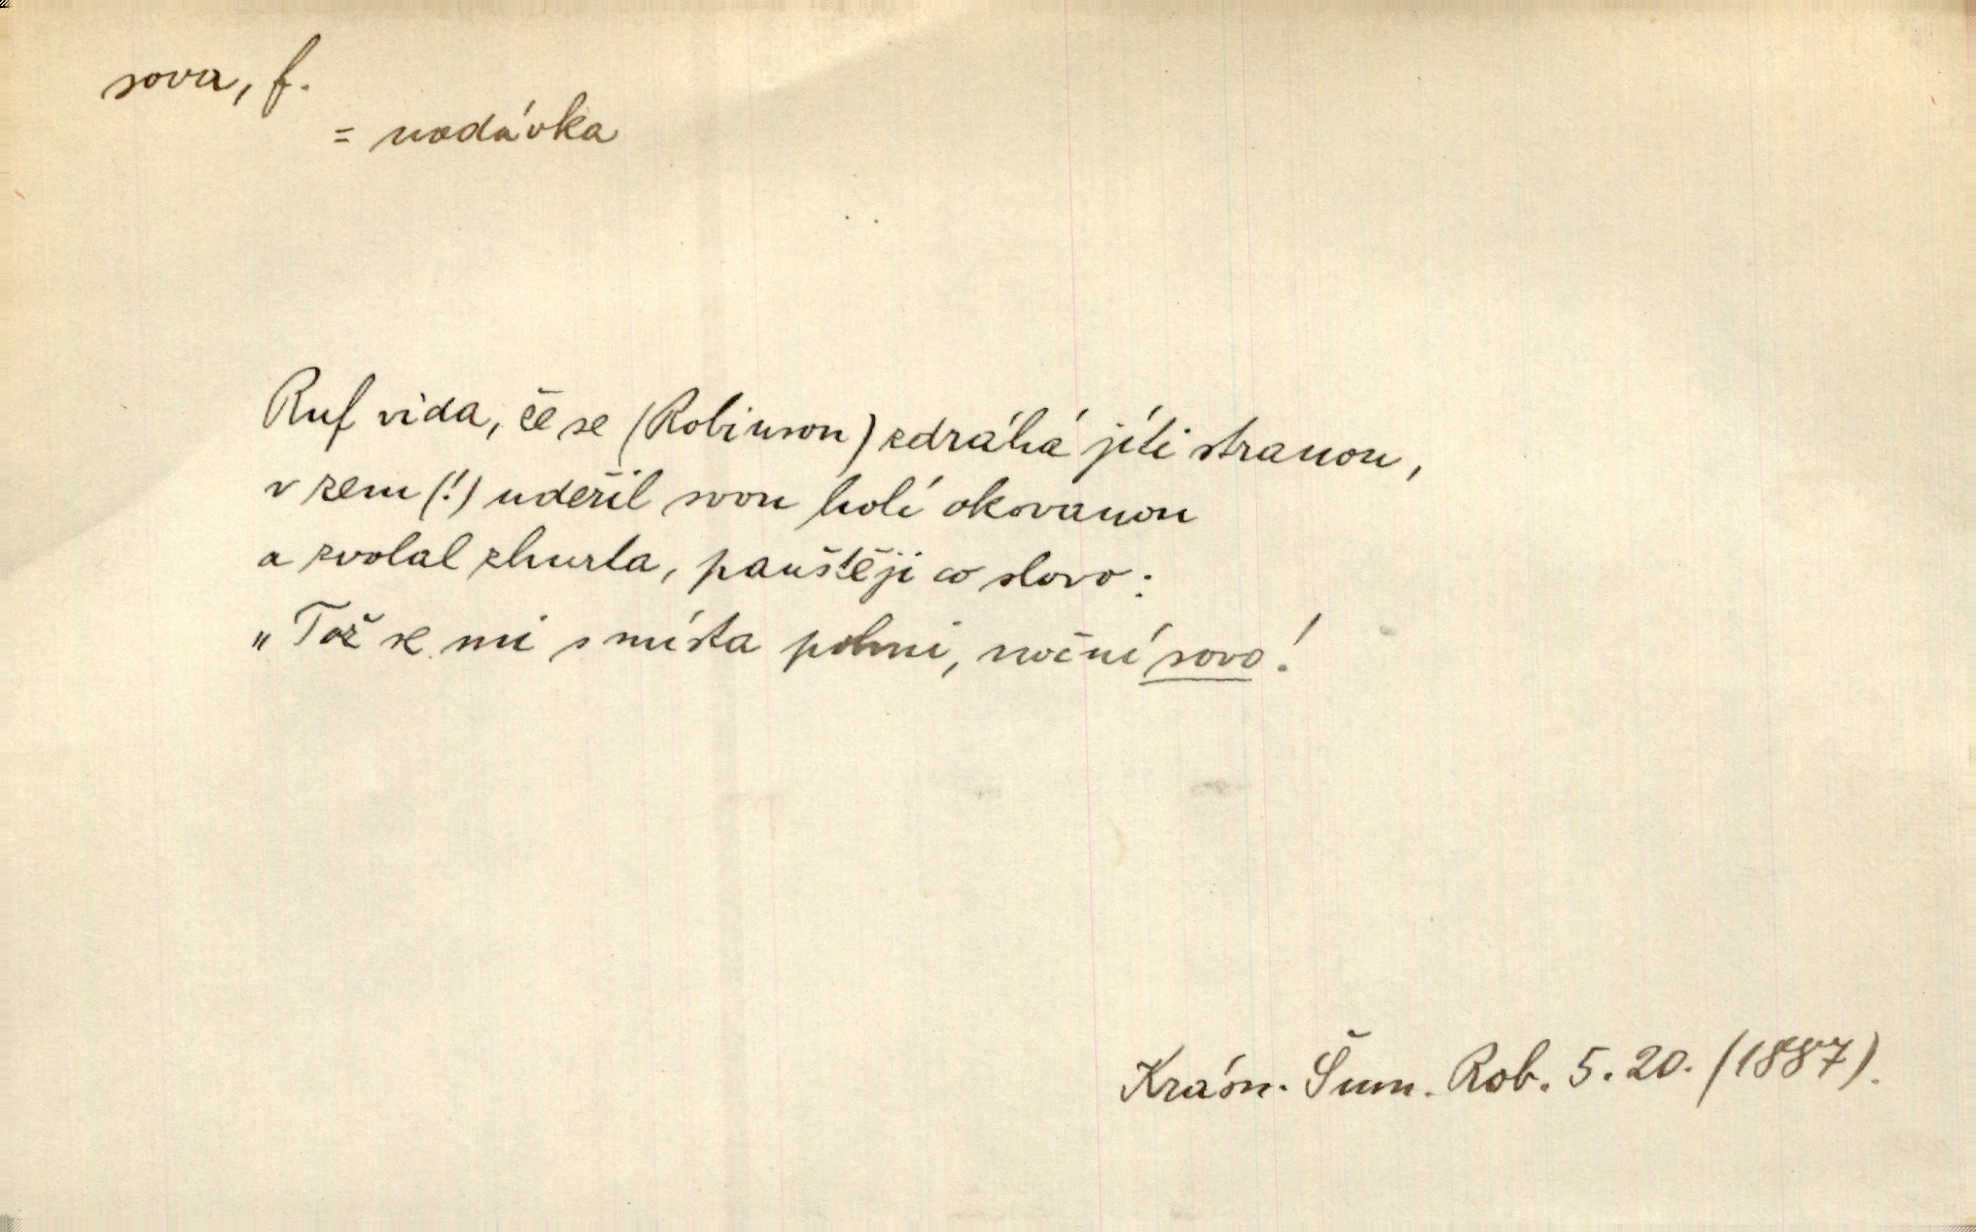 sova, f.
= nadávka
Ruf vida, že se (Robinson) zdráhá jíti stranou,
v zem (!) udeřil svou holí okovanou
a zvolal zhurta, pauštěji co slovo:
„Tož se mi s místa pohni, noční sovo!
Krásn. Šum. Rob. 5. 20. (1887).